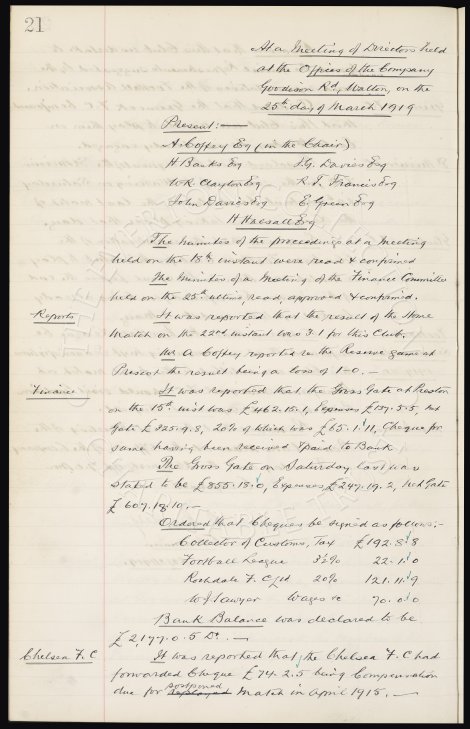 21
At a Meeting of Directors held
at the Offices of the Company
Goodison Rd, Walton, on the
25th day of March 1919
Present:—
A. Coffey Esq (in the Chair)
H Banks Esq J.G. Davies Esq
W.R. Clayton Esq R.T. Francis Esq
John Davies Esq E. Green Esq
H Halsall Esq
The minutes of the proceedings at a Meeting
held on the 18th instant were read & confirmed
The Minutes of a Meeting of the Finance Committee
held on the 25th ultimo read, approved & confirmed.
Reports It was reported that the result of the Home
Match on the 22nd instant was 3-1 for this Club.
Mr A Coffey reported re the Reserve game at
Prescot the result being a loss of 1-0. —
Finance It was reported that the Gross Gate at Preston
on the 15th inst was £462.15.1, Expenses £137.5.5, net
Gate £325.9.8, 20% of which was £65.1.11, Cheque for
same having been received & paid to Bank.
The Gross Gate on Saturday last was
stated to be £855.18.0, Expenses £247.19.2, Net Gate
£607.18.10. —
Ordered that Cheques be signed as follows:-
Collector of Customs, Tax £192.8.8
Football League 3½% 22.1.0
Rochdale F.C. Ltd 20% 121.11.9
W.J. Sawyer Wages &c 70.0.0
Bank Balance was declared to be
£2,177.0.5 Dr. —
Chelsea F.C It was reported that the Chelsea F.C had
forwarded Cheque £74.2.5 being Compensation
postponed
due for Replayed Match in April 1915. —